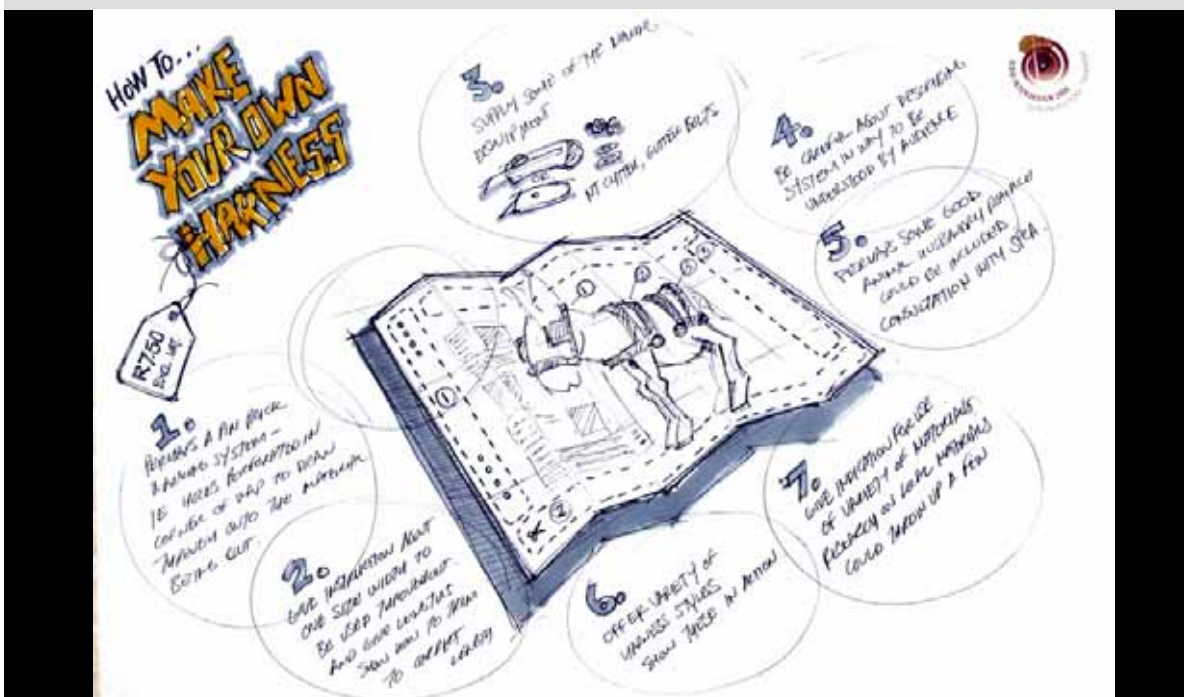 HOW TO...
MAKE
YOUR OWN
HARNESS
R7.50
EXCL. VAT
1.
PERHAPS A PIN PRICK
MARKING SYSTEM -
IE HOLES PERFORATED IN
CORNER OF MAP TO DRAW
THROUGH ONTO THE MATERIAL
BEING CUT.
2.
GIVE INSTRUCTION ABOUT
ONE SIZE WIDTH TO
BE USED THROUGHOUT.
AND GIVE LENGTHS
SHOW HOW TO TRIM
TO CORRECT
LENGTH
3.
SUPPLY SOME OF THE
EQUIPMENT
OR
NT CUTTER, GUTTER BOLTS
4.
BE CAREFUL ABOUT DESCRIBING
SYSTEM IN WAY TO BE
UNDERSTOOD BY AUDIENCE
5.
PERHAPS SOME GOOD
ANIMAL HUSBANDRY
COULD BE INCLUDED
CONSULTATION WITH SPCA.
6.
OFFER VARIETY OF
HARNESS STYLES
SHOW THESE IN ACTION
7.
GIVE INDICATION FOR USE
OF VARIETY OF MATERIALS
RESEARCH ON LOCAL MATERIALS
COULD THROW UP A FEW
1
2
1
2
3
4